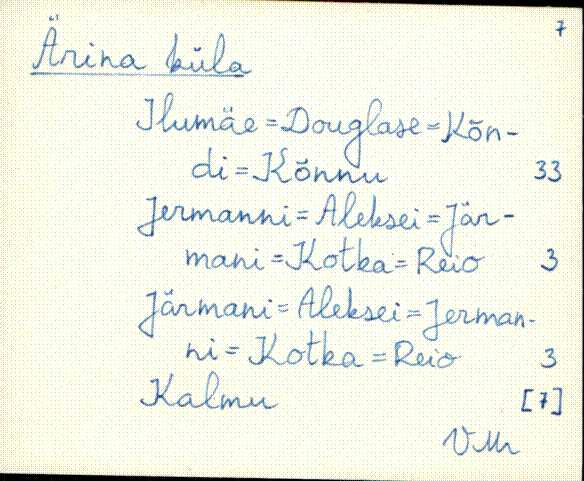 7
Ärina küla
Ilumäe = Douglase = Kõn-
di = Kõnnu 33
Jermanni = Aleksei = Jär-
mani = Kotka = Reio 3
Järmani = Aleksei = Jerman-
ni = Kotka = Reio 3
Kalmu [7]